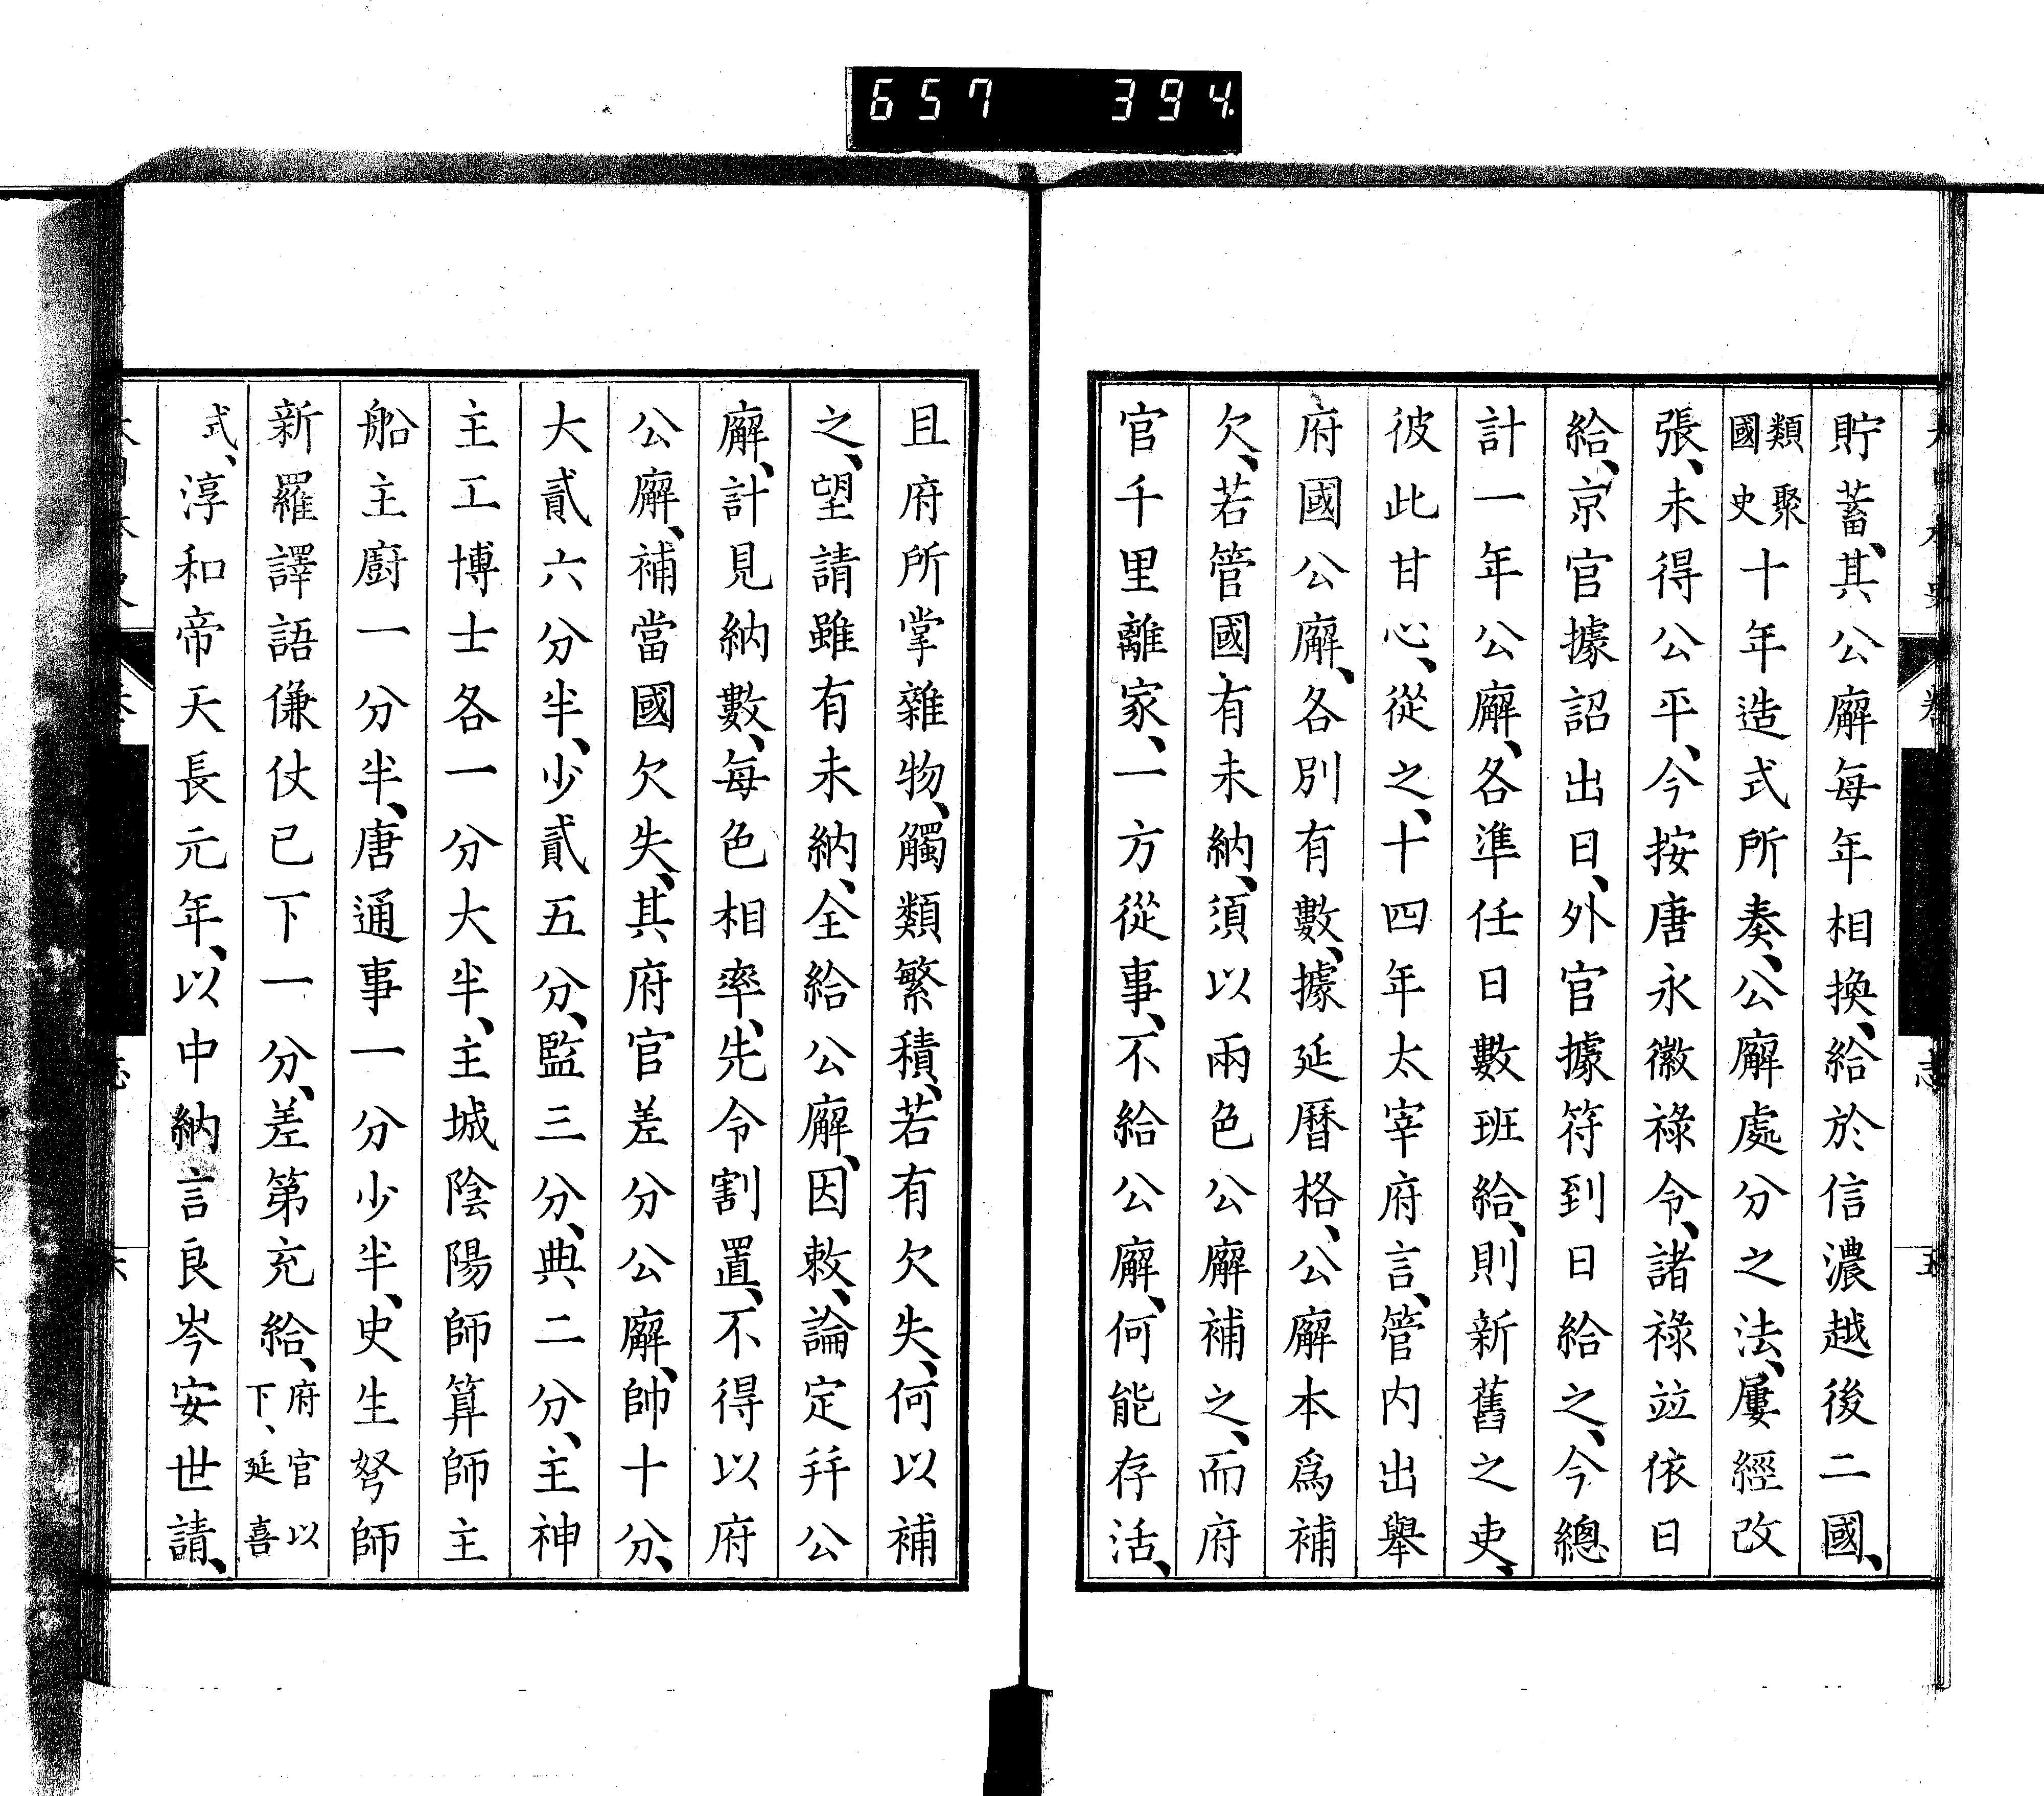 657 394.
貯蓄、其公廨每年相換、給於信濃越後二國、
類聚國史十年造式所奏、公廨處分之法、屢經改
張、未得公平、今按唐永徽祿令、諸祿竝依日
給、京官據詔出日、外官據符到日給之、今總
計一年公廨、各準任日數班給、則新舊之吏、
彼此甘心、從之、十四年太宰府言、管内出舉
府國公廨、各別有數、據延曆格、公廨本爲補
欠、若管國有未納、須以兩色公廨補之、而府
官千里離家、一方從事、不給公廨、何能存活、
且府所掌雜物、觸類繁積、若有欠失、何以補
之、望請雖有未納、全給公廨、因敕、論定幷公
廨、計見納數、每色相率、先令割置、不得以府
公廨、補當國欠失、其府官差分公廨、帥十分、
大貳六分半、少貳五分、監三分、典二分、主神
主工博士各一分大半、主城陰陽師算師主
船主廚一分半、唐通事一分少半、史生弩師
新羅譯語傔仗已下一分、差第充給、府官以下、延喜
式、淳和帝天長元年、以中納言良岑安世請、